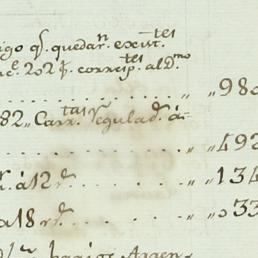 igo q.s quedar.n exist.tes
c.e 202 p.s corresp.tes al d.mo
. . . . . . . . . . . . . . . . „ „ 980
82 „ Carr.tas regulad.s á
. . . . . . . . . . . . . . . . „ „ 492
á 12 r.s . . . . . . . . „ „ 134
a 18 r.s . . . . . . . . „ „ 033